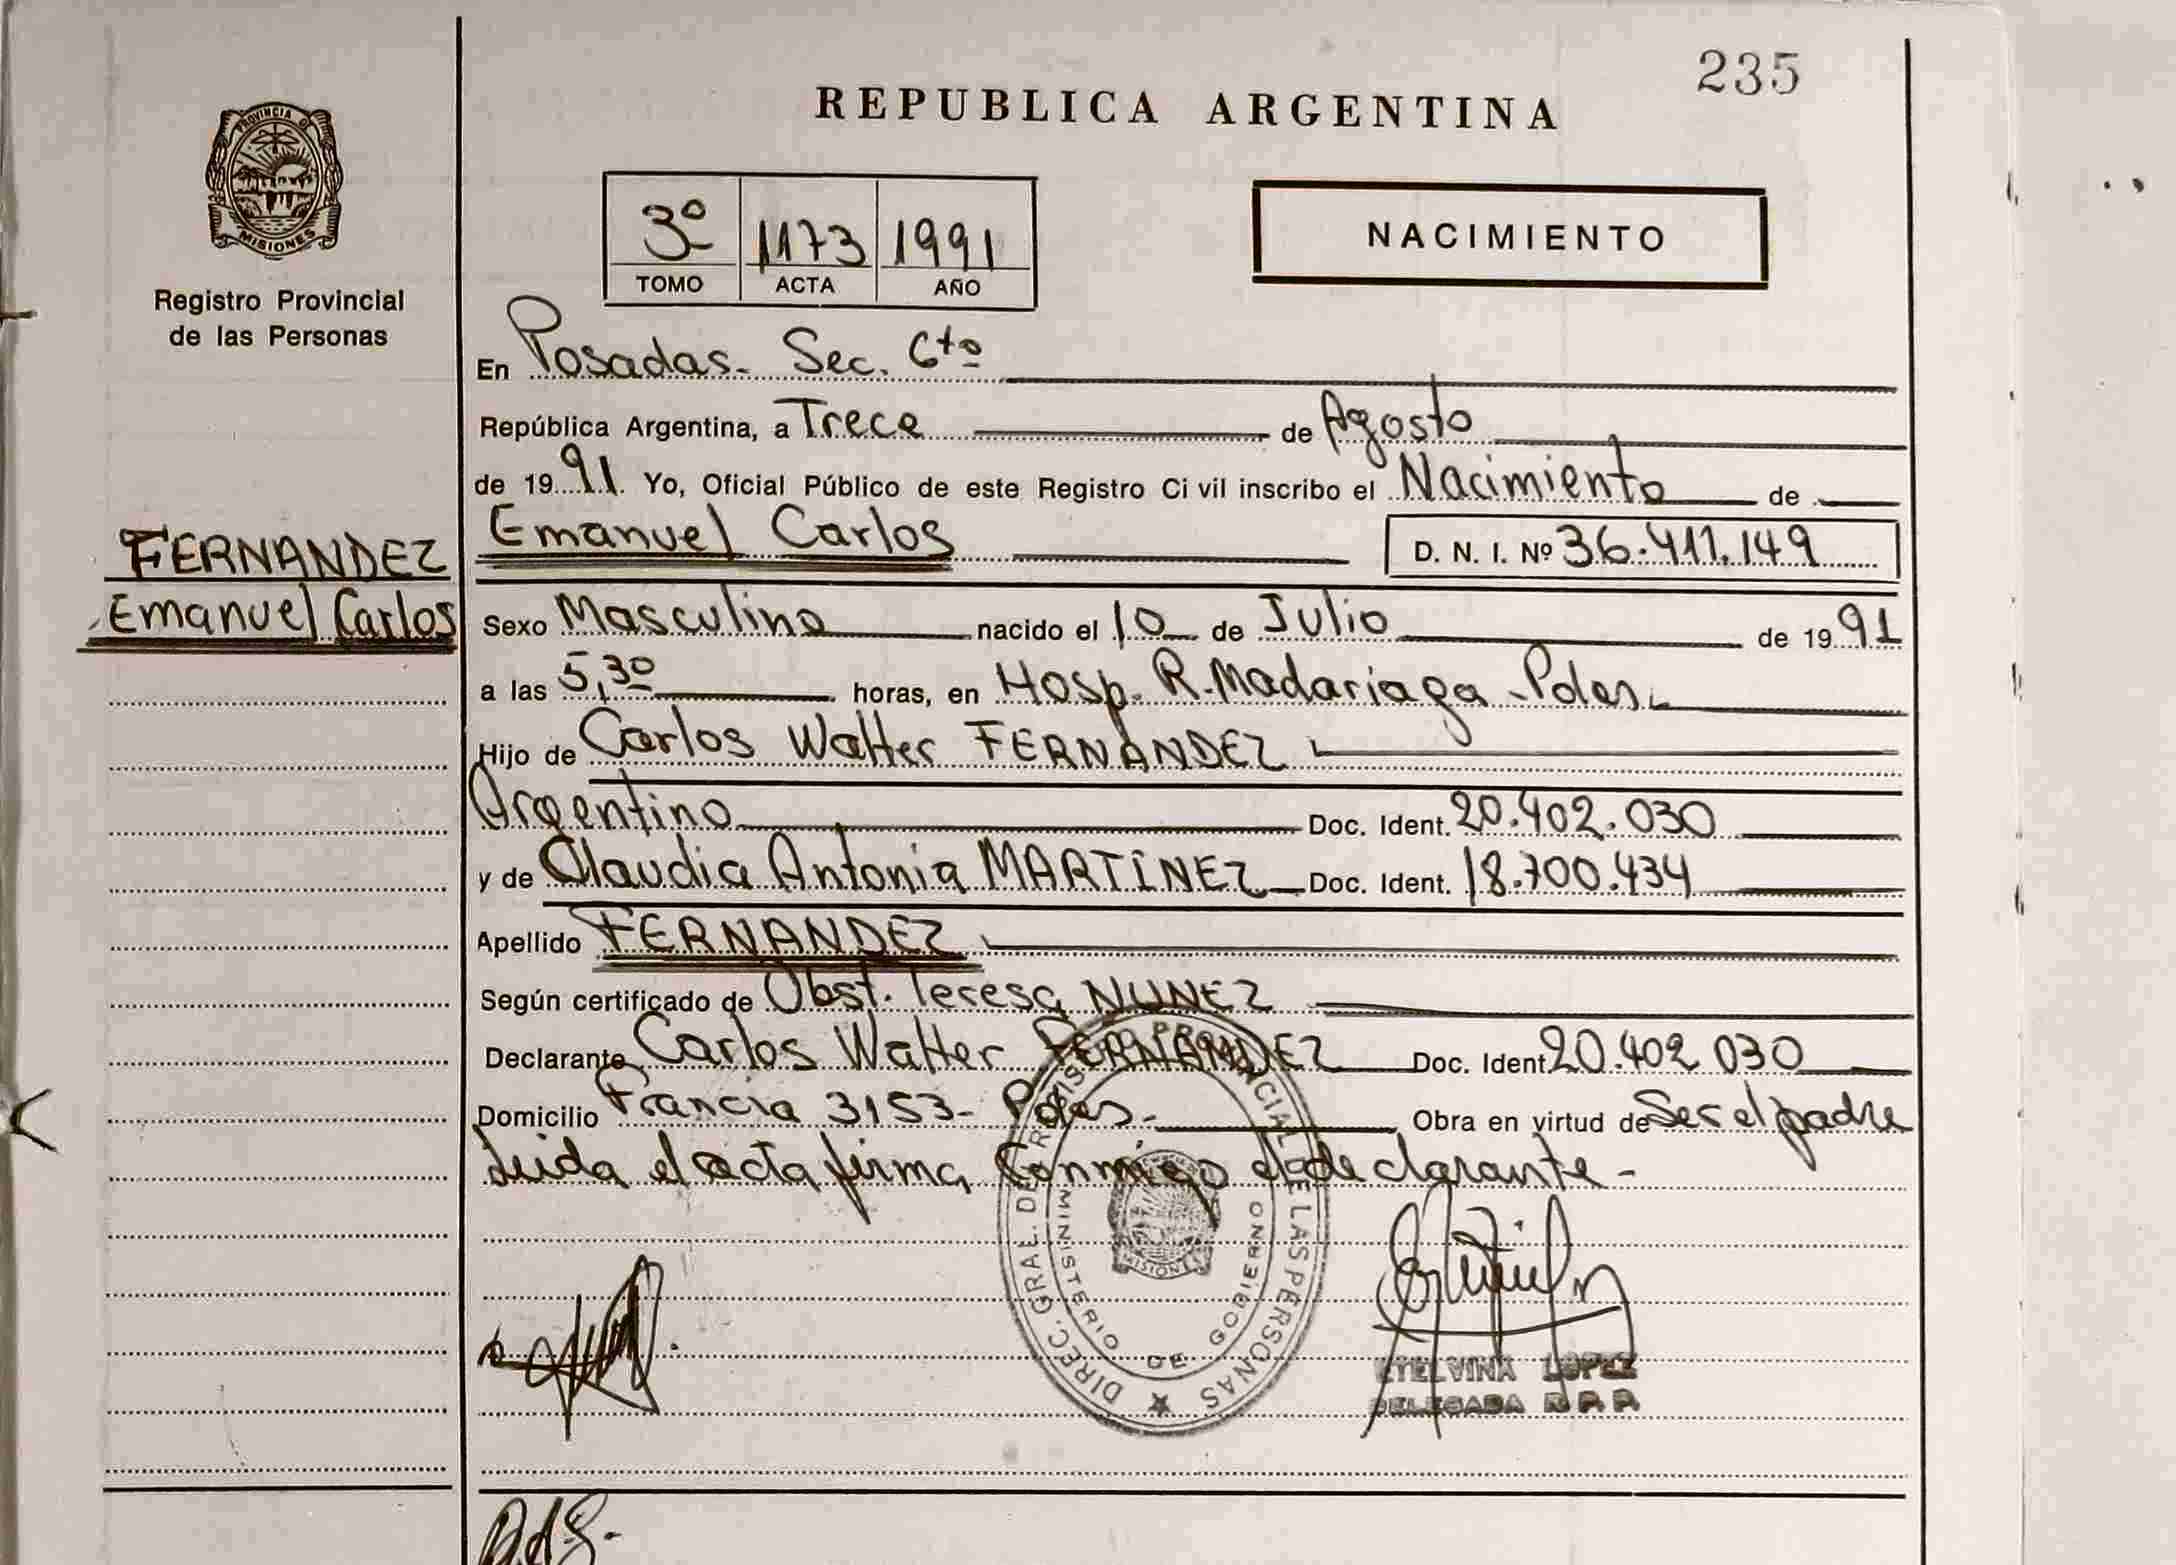 235
REPUBLICA ARGENTINA
PROVINCIA D
MISIONES
Registro Provincial
de las Personas
3º 1173 1991
TOMO ACTA AÑO
NACIMIENTO
En Posadas. Sec. 6to
República Argentina, a Trece de Agosto
de 1991 Yo, Oficial Público de este Registro Civil inscribo el Nacimiento de
FERNANDEZ
Emanuel Carlos
Emanuel Carlos D. N. I. Nº 36.411.149
Sexo Masculino nacido el 10 de Julio de 1991
a las 5,30 horas, en Hosp. R. Madariaga - Pdas.
Hijo de Carlos Walter FERNANDEZ
Argentino Doc. Ident. 20.402.030
y de Claudia Antonia MARTINEZ Doc. Ident. 18.700.434
Apellido FERNANDEZ
Según certificado de Obst. Teresa NUNEZ
Declarante Carlos Walter FERNANDEZ Doc. Ident. 20.402 030
Domicilio Francia 3153- Pdas. Obra en virtud de Ser el padre
Leida el acta firma Conmigo el declarante -
DIREC. GRAL. DE REGISTRO PROVINCIAL DE LAS PERSONAS
MINISTERIO DE GOBIERNO
MISIONES
ETELVINA LOPEZ
DELEGADA R. P. P.